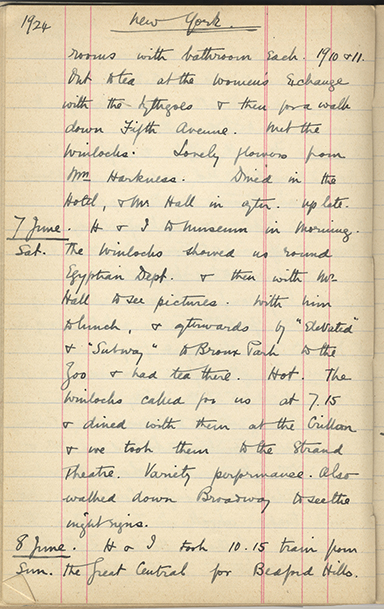 1924 New York.
rooms with bathroom each. 1910 & 11.
Out to tea at the Women's Exchange
with the Lythgoes & then for a walk
down Fifth Avenue. Met the
Winlocks. Lovely flowers from
Wm Harkness. Dined in the
Hotel, & Mr Hall in after. Up late.
7 June. H & I to Museum in morning.
Sat. The Winlocks showed us round
Egyptian Dept. & then with Mr
Hall to see pictures. With him
to lunch, & afterwards by "Elevated"
& "Subway" to Bronx Park to the
Zoo & had tea there. Hot. The
Winlocks called for us at 7.15
& dined with them at the Crillon
& we took them to the Strand
Theatre. Variety performance. Also
walked down Broadway to see the
night signs.
8 June. H & I took 10.15 train from
Sun. the Great Central for Bedford Hills.